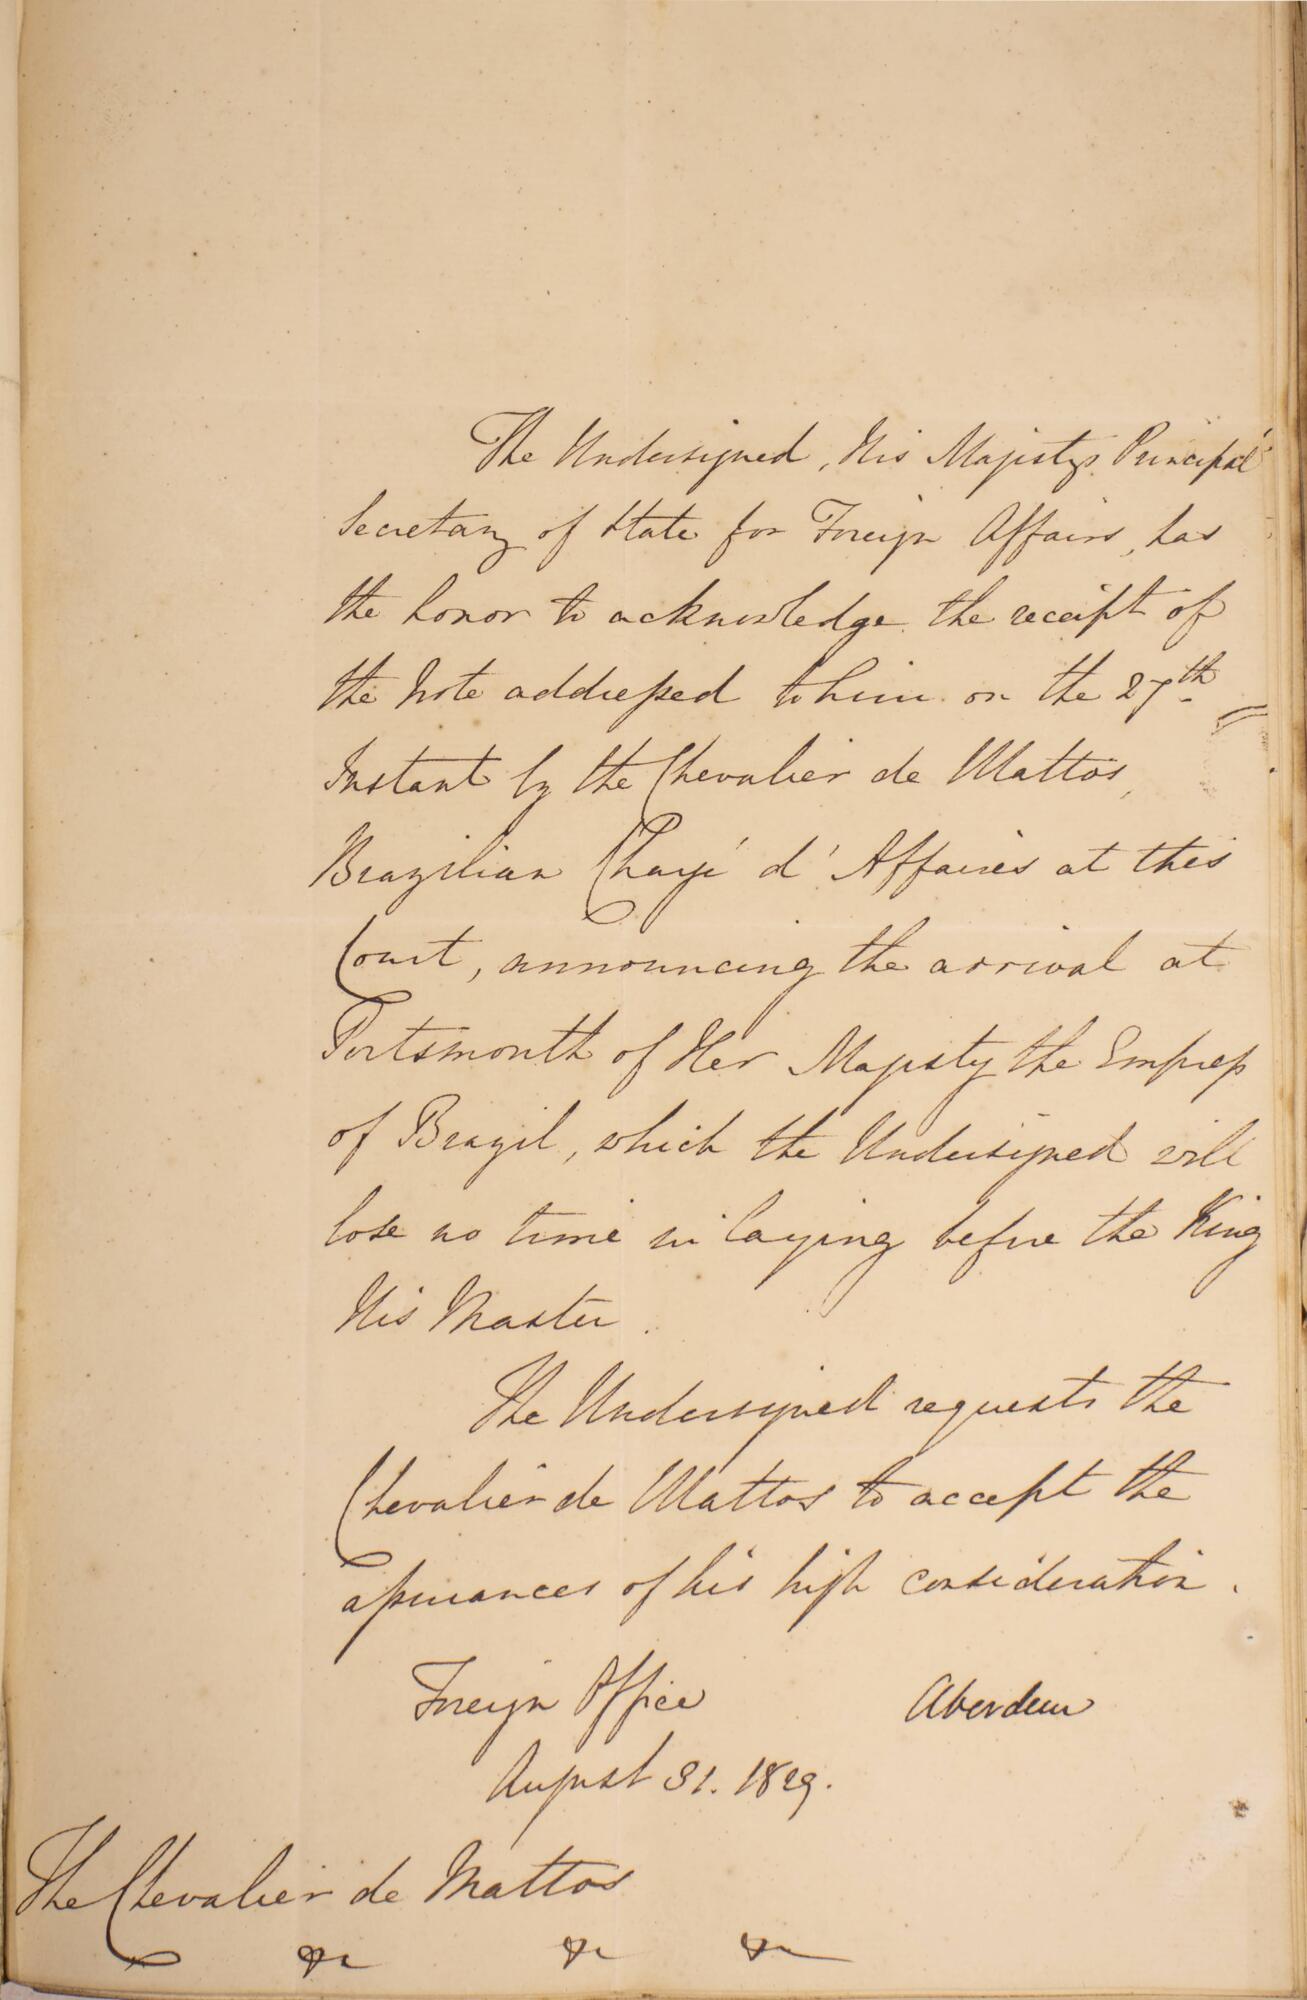 The Undersigned, His Majesty's Principal
Secretary of State for Foreign Affairs, has
the honor to acknowledge the receipt of
the Note addressed to him on the 27th
Instant by the Chevalier de Mattos,
Brazilian Chargé d'Affaires at this
Court, announcing the arrival at
Portsmouth of Her Majesty the Empress
of Brazil, which the Undersigned will
lose no time in laying before the King
His Master.
The Undersigned requests the
Chevalier de Mattos to accept the
assurances of his high consideration.
Foreign Office Aberdeen
August 31. 1829.
The Chevalier de Mattos
&c &c &c